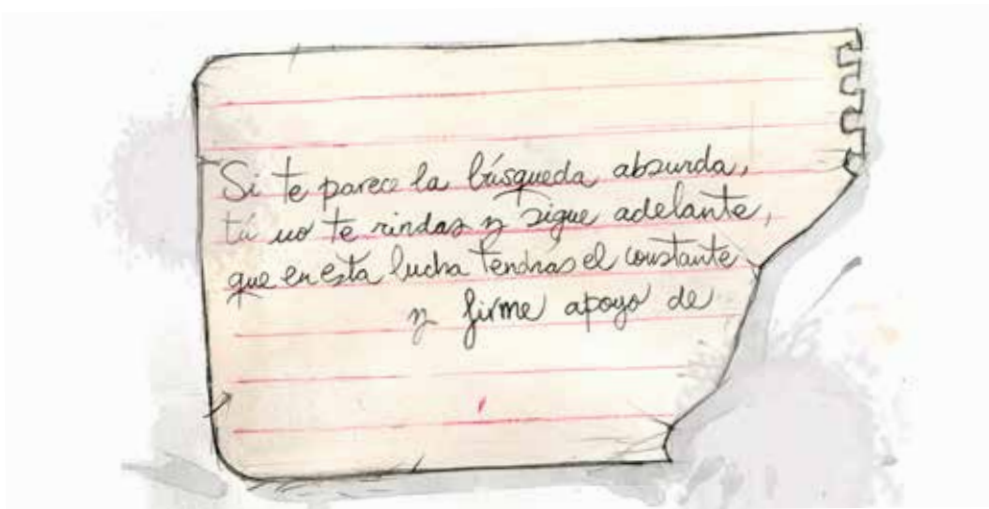 Si te parece la búsqueda absurda,
tú no te rindas y sigue adelante,
que en esta lucha tendrás el constante
y firme apoyo de